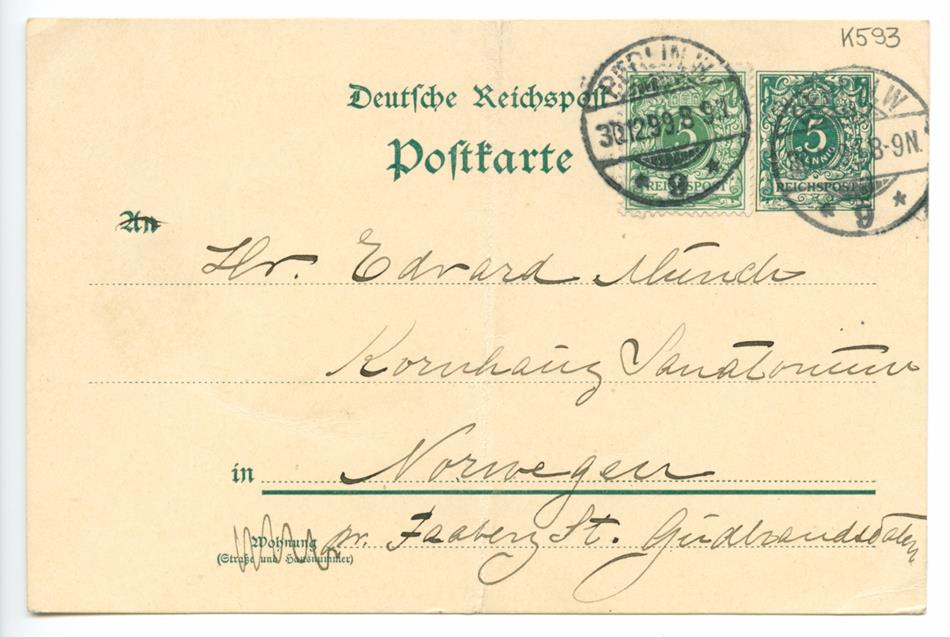 K593
Deutsche Reichspost
Postkarte
BERLIN.W.
30.12.99.8-9N.
* 9 *
5
REICHSPOST
5
PFENNIG
REICHSPOST
W
8-9N.
* 9 *
An
Hr. Edvard Munch
Kornhaug Sanatorium
in Norwegen
Wohnung
(Straße und Hausnummer)
pr. Faaberg St. Gudbrandsdalen